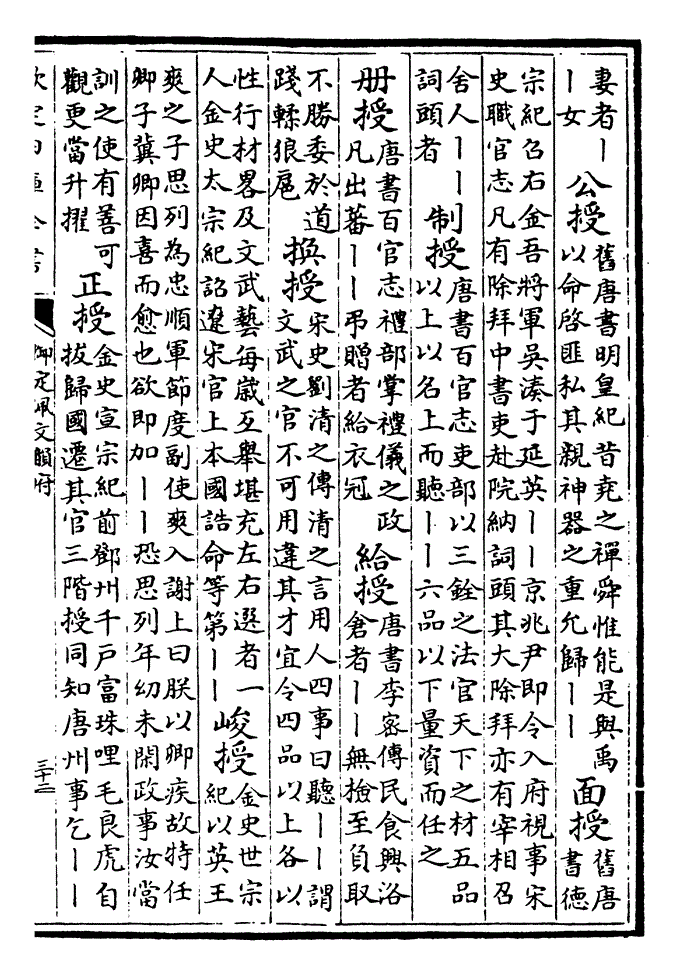 妻者丨
丨女
公授
舊唐書明皇紀昔堯之禪舜惟能是與禹
以命啓匪私其親神器之重允歸丨丨
面授
舊唐
書德
宗紀召右金吾將軍吳湊于延英丨丨京兆尹即令入府視事宋
史職官志凡有除拜中書吏赴院納詞頭其大除拜亦有宰相召
舍人丨丨
詞頭者
制授
唐書百官志吏部以三銓之法官天下之材五品
以上以名上而聽丨丨六品以下量資而任之
册授
唐書百官志禮部掌禮儀之政
凡出蕃丨丨弔贈者給衣冠
給授
唐書李密傳民食興洛
倉者丨丨無檢至負取
不勝委於道
踐輮狼扈
換授
宋史劉清之傳清之言用人四事曰聽丨丨謂
文武之官不可用違其才宜令四品以上各以
性行材畧及文武藝每歲互舉堪充左右選者一
人金史太宗紀詔遼宋官上本國誥命等第丨丨
峻授
金史世宗
紀以英王
爽之子思列為忠順軍節度副使爽入謝上曰朕以卿疾故特任
卿子冀卿因喜而愈也欲即加丨丨恐思列年幼未閑政事汝當
訓之使有善可
觀更當升擢
正授
金史宣宗紀前鄧州千戶富珠哩毛良虎自
拔歸國遷其官三階授同知唐州事乞丨丨
欽定四庫全書
御定佩文韻府
三十二